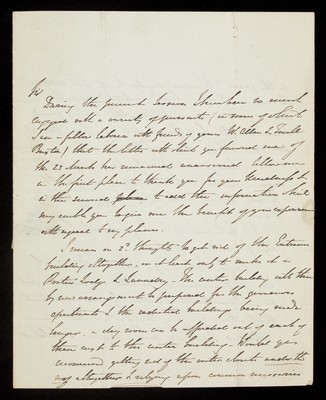 Sir
During the present Session I have been so much
engaged with a variety of pursuits, (in some of which
I am a fellow labourer with friends of yours W. Allen & Fowell
Buxton) that the letter with which you favored me of
the 23 March has remained unanswered. Allow me
in the first place to thank you for your kindness &
in the second to add the information which
may enable you to give me the benefit of your experience
with regard to my plans.
I mean on 2d. thoughts to get rid of the Entrance
building altogether, or at least only to make it a
Porters Lodge & Laundry - The centre building will then
by our arrangement be prepared for the governors
apartments & the radiated buildings being made
longer, a day room can be afforded out of each of
them next to the centre building. Would you
recommend getting rid of the water closets under the
roof altogether & relying upon common necessaries